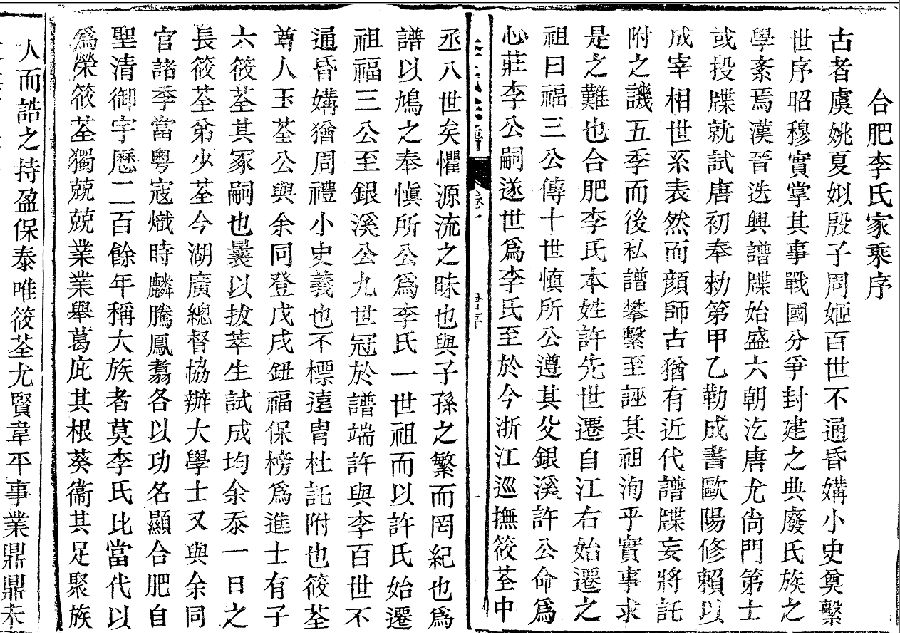 合肥李氏家乘序
古者虞姚夏姒殷子周姬百世不通昏媾小史奠繫
世序昭穆實掌其事戰國分爭封建之典廢氏族之
學紊焉漢晉迭興譜牒始盛六朝汔唐尤尙門第士
或投牒就試唐初奉敕第甲乙勒成書歐陽修賴以
成宰相世系表然而顏師古猶有近代譜牒妄將託
附之譏五季而後私譜攀繫至誣其祖洵乎實事求
是之難也合肥李氏本姓許先世遷自江右始遷之
祖曰福三公傳十世愼所公遵其父銀溪許公命爲
心莊李公嗣遂世爲李氏至於今浙江巡撫筱荃中
丞八世矣懼源流之昧也與子孫之繁而罔紀也爲
譜以鳩之奉愼所公爲李氏一世祖而以許氏始遷
祖福三公至銀溪公九世冠於譜端許與李百世不
通昏媾猶周禮小史義也不標遠胄杜託附也筱荃
尊人玉荃公與余同登戊戌鈕福保榜爲進士有子
六筱荃其冢嗣也曩以拔萃生試成均余忝一日之
長筱荃弟少荃今湖廣總督協辦大學士又與余同
官諸季當粤寇熾時麟騰鳳翥各以功名顯合肥自
聖清御宇歷二百餘年稱大族者莫李氏比當代以
爲榮筱荃獨兢兢業業舉葛庇其根葵衞其足聚族
人而誥之持盈保泰唯筱荃尤賢韋平事業鼎鼎未